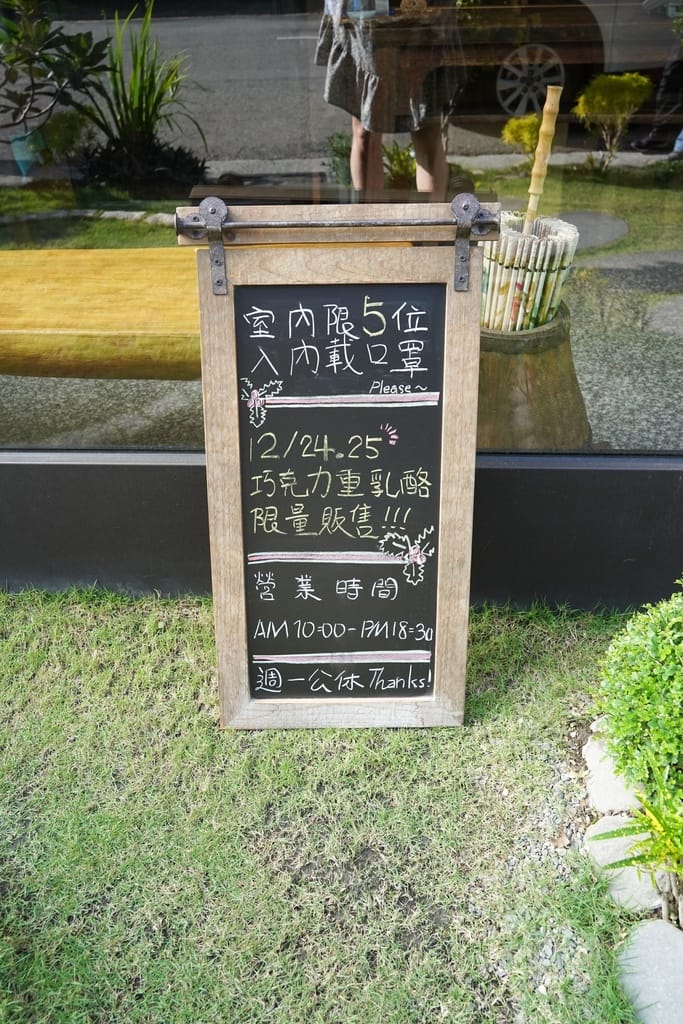 室內限5位
入內載口罩
Please~
12/24.25
巧克力重乳酪
限量販售!!!
營業時間
AM10:00-PM18:30
週一公休Thanks!